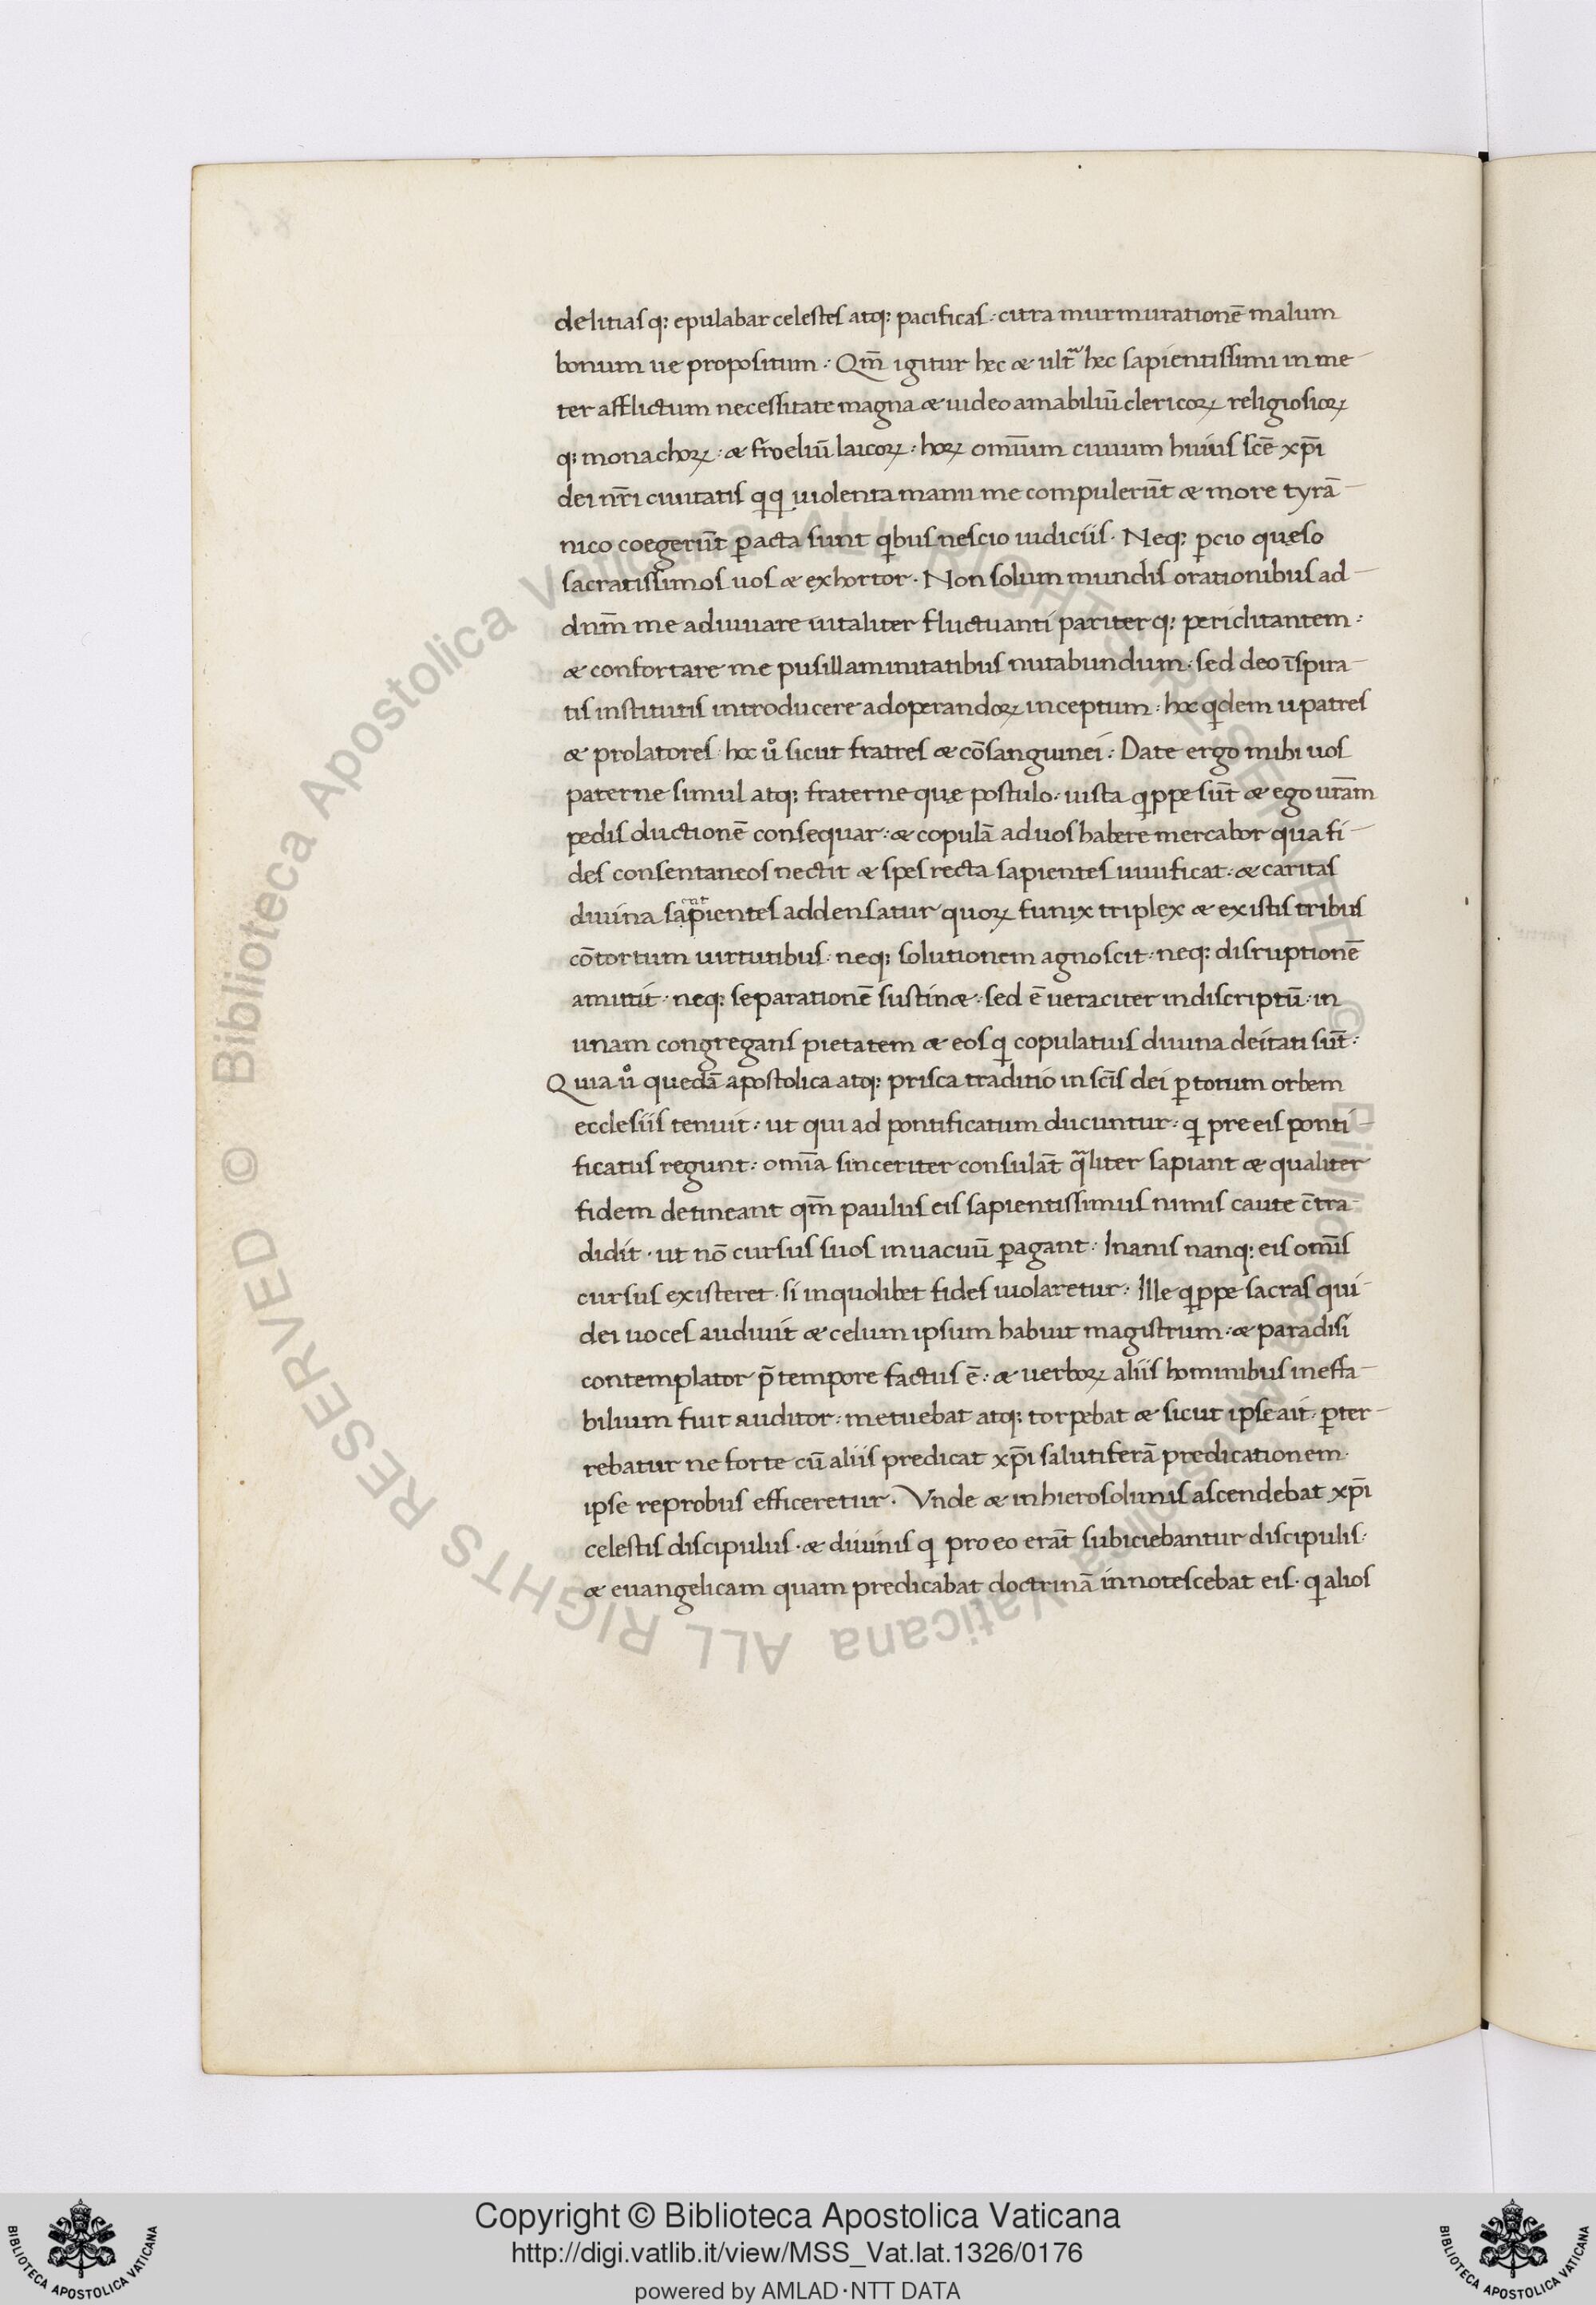 delitiasq: epulabar celestes atq: pacificas · citra murmurationē malum
bonum ue propositum : Qm̄ igitur hec æ ultͣ hec sapientissimi in me-
ter afflictum necessitate magna æ uideo amabiliū clericoꝝ religiosioꝝ
q: monachoꝝ : æ froeliū laicoꝝ : hoꝝ omīum ciuium huius scē xp̄i
dei nr̄i ciuitatis qiqi uiolenta manu me compulerūt æ more tyrā-
nico coegerūt ꝑacta sunt qibus nescio iudiciis · Neq: ꝑcio quęso
sacratissimos uos æ exhortor · Non solum mundis orationibus ad-
dnm̄ me adiuuare uitaliter fluctuanti pariterq: periclitantem :
æ confortare me pusillaminitatibus nutabundum · sed deo īspira-
tis institutis introducere ad operandoꝝ inceptum : hoc qidem u patres
æ prolatores · hoc ů sicut fratres æ cōsanguinei : Date ergo mihi uos
paterne simul atq: fraterne quę postulo · iusta qippe sūt æ ego ur̄am
pedis ductionē consequar : æ copulā ad uos habere mercabor qua fi-
des consentaneos nectit æ spes recta sapientes uiuificat : æ caritas
diuina sapientes addensatur quoꝝ funix triplex æ existis tribus
cōtortum uirtutibus · neq: solutionem agnoscit · neq: disruptionē
amittit · neq: separationē sustinæ : sed ē ueraciter indiscriptū · in
unam congregans pietatem æ eos qi copulatius diuina deitati sūt :
Quia ů quedā apostolica atq: prisca traditio in scīs dei ꝑ totum orbem
ecclesiis tenuit : ut qui ad pontificatum ducuntur · qi pre eis ponti-
ficatus regunt : omīa sinceriter consulāt qͣliter sapiant æ qualiter
fidem detineant qm̄ paulus eis sapientissimus nimis caute c̄tra-
didit · ut nō cursus suos in uacuū ꝑagant : Inanis nanq: eis omīs
cursus existeret · si in quolibet fides uiolaretur : Ille qippe sacras qui-
dei uoces audiuit æ celum ipsum habuit magistrum : æ paradisi
contemplator p̄ tempore factus ē : æ uerboꝝ aliis hominibus ineffa-
bilium fuit auditor : metuebat atq: torpebat æ sicut ipse ait · ꝑter-
rebatur ne forte cū aliis predicat xp̄i salutiferā predicationem ·
ipse reprobus efficeretur · Vnde æ in hierosolimis ascendebat xp̄i
celestis discipulus · æ diuinis qi pro eo erāt subiciebantur discipulis ·
æ euangelicam quam predicabat doctrinā innotescebat eis · qi alios
© Biblioteca Apostolica Vaticana ALL RIGHTS RESERVED © Biblioteca Apostolica Vaticana ALL RIGHTS RESERVED
Copyright © Biblioteca Apostolica Vaticana
http://digi.vatlib.it/view/MSS_Vat.lat.1326/0176
powered by AMLAD·NTT DATA
BIBLIOTECA APOSTOLICA VATICANA
BIBLIOTECA APOSTOLICA VATICANA